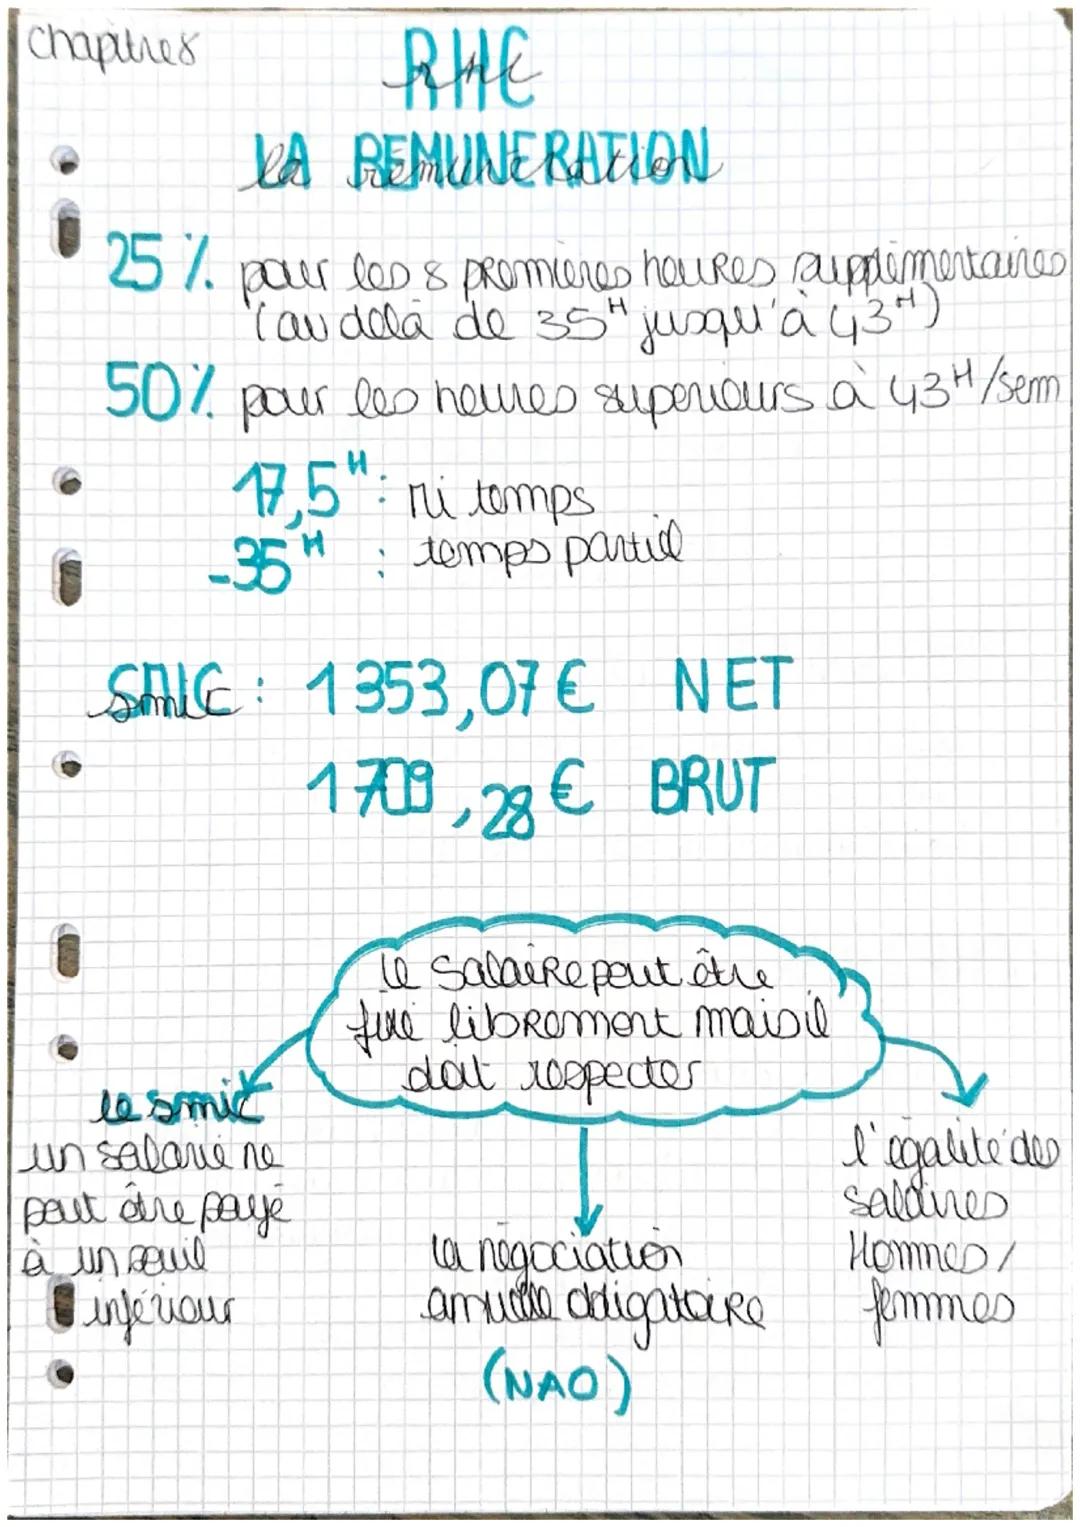 chapitre 8
RHC
LA REMUNERATION
25% pour les 8 premières heures supplémentaires
(au delà de 35H jusqu'à 43H)
50% pour les heures superieurs à 43H/sem
17,5H : mi temps
-35H : temps partiel
SMIC : 1353,07€ NET
1709,28€ BRUT
le salaire peut être
fixé librement mais il
doit respecter
le smic
un salarié ne
peut être payé
à un seuil
inférieur
la négociation
annuelle obligatoire
(NAO)
l'égalité des
salaires
Hommes/
femmes